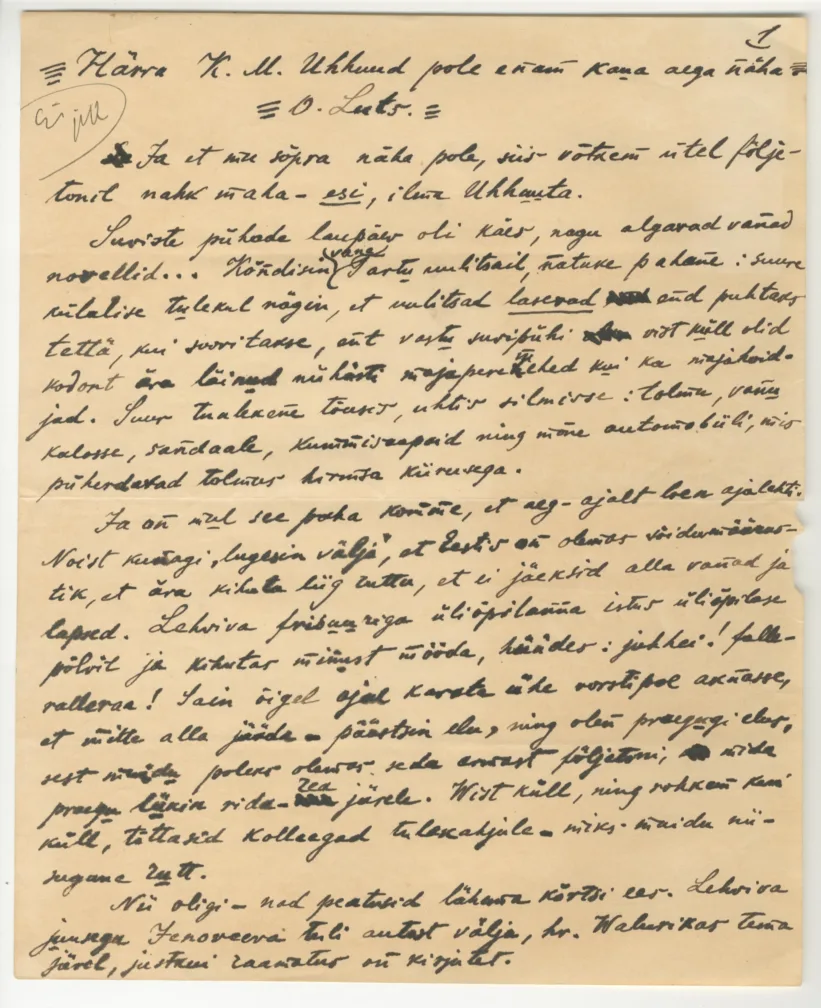 1
Härra K. M. Uhkuud pole enam kana aega näha
O. Luts.
Ja et mu sõpra näha pole, siis võtkem ütel följe-
tonil nahk maha – esi, ilma Uhkuuta.
Suviste pühade laupäev oli käes, nagu algavad vanad
novellid... Kõndisin vana Tartu uulitsail, natuke pahane: suure
külalise tulekul nägin, et uulitsad lasevad end puhtaks
tettä, kui sooritakse, ent vastu suvipühi vist küll olid
kodont ära läinud niihästi majaperemehed kui ka majahoid-
jad. Suur tuulekene tõusis, uhtis silmisse: tolmu, vanu
kalosse, sandaale, kummisaapaid ning mõne automobiili, mis
püherdavad tolmus hirmsa kiirusega.
Ja on mul see paha komme, et aeg-ajalt loen ajalehti.
Noist kunagi „lugesin välja”, et Eestis on olemas sõidumäärus-
tik, et ära kihuta liig ruttu, et ei jäeksid alla vanad ja
lapsed. Lehviva frisuuriga üliõpilanna istus üliõpilase
põlvil ja kihutas minust mööda, hüüdes: juhhei! falle-
ralleraa! Sain õigel ajal karata ühe vorstipoe aknasse,
et mitte alla jääda – päästsin elu, ning olen praegugi elus,
sest muidu poleks olemas seda armast följetoni, mida
praegu lükin rida-rea järele. Wist küll, ning rohkem kui
küll, tõttasid kolleegad tulekahjule – miks muidu nii-
sugune rutt.
Nii oligi – nad peatusid lähema kõrtsi ees. Lehviva
juusega Jenoveeva tuli autust välja, hr. Waherikas tema
järel, justkui raamatus on kirjutet.